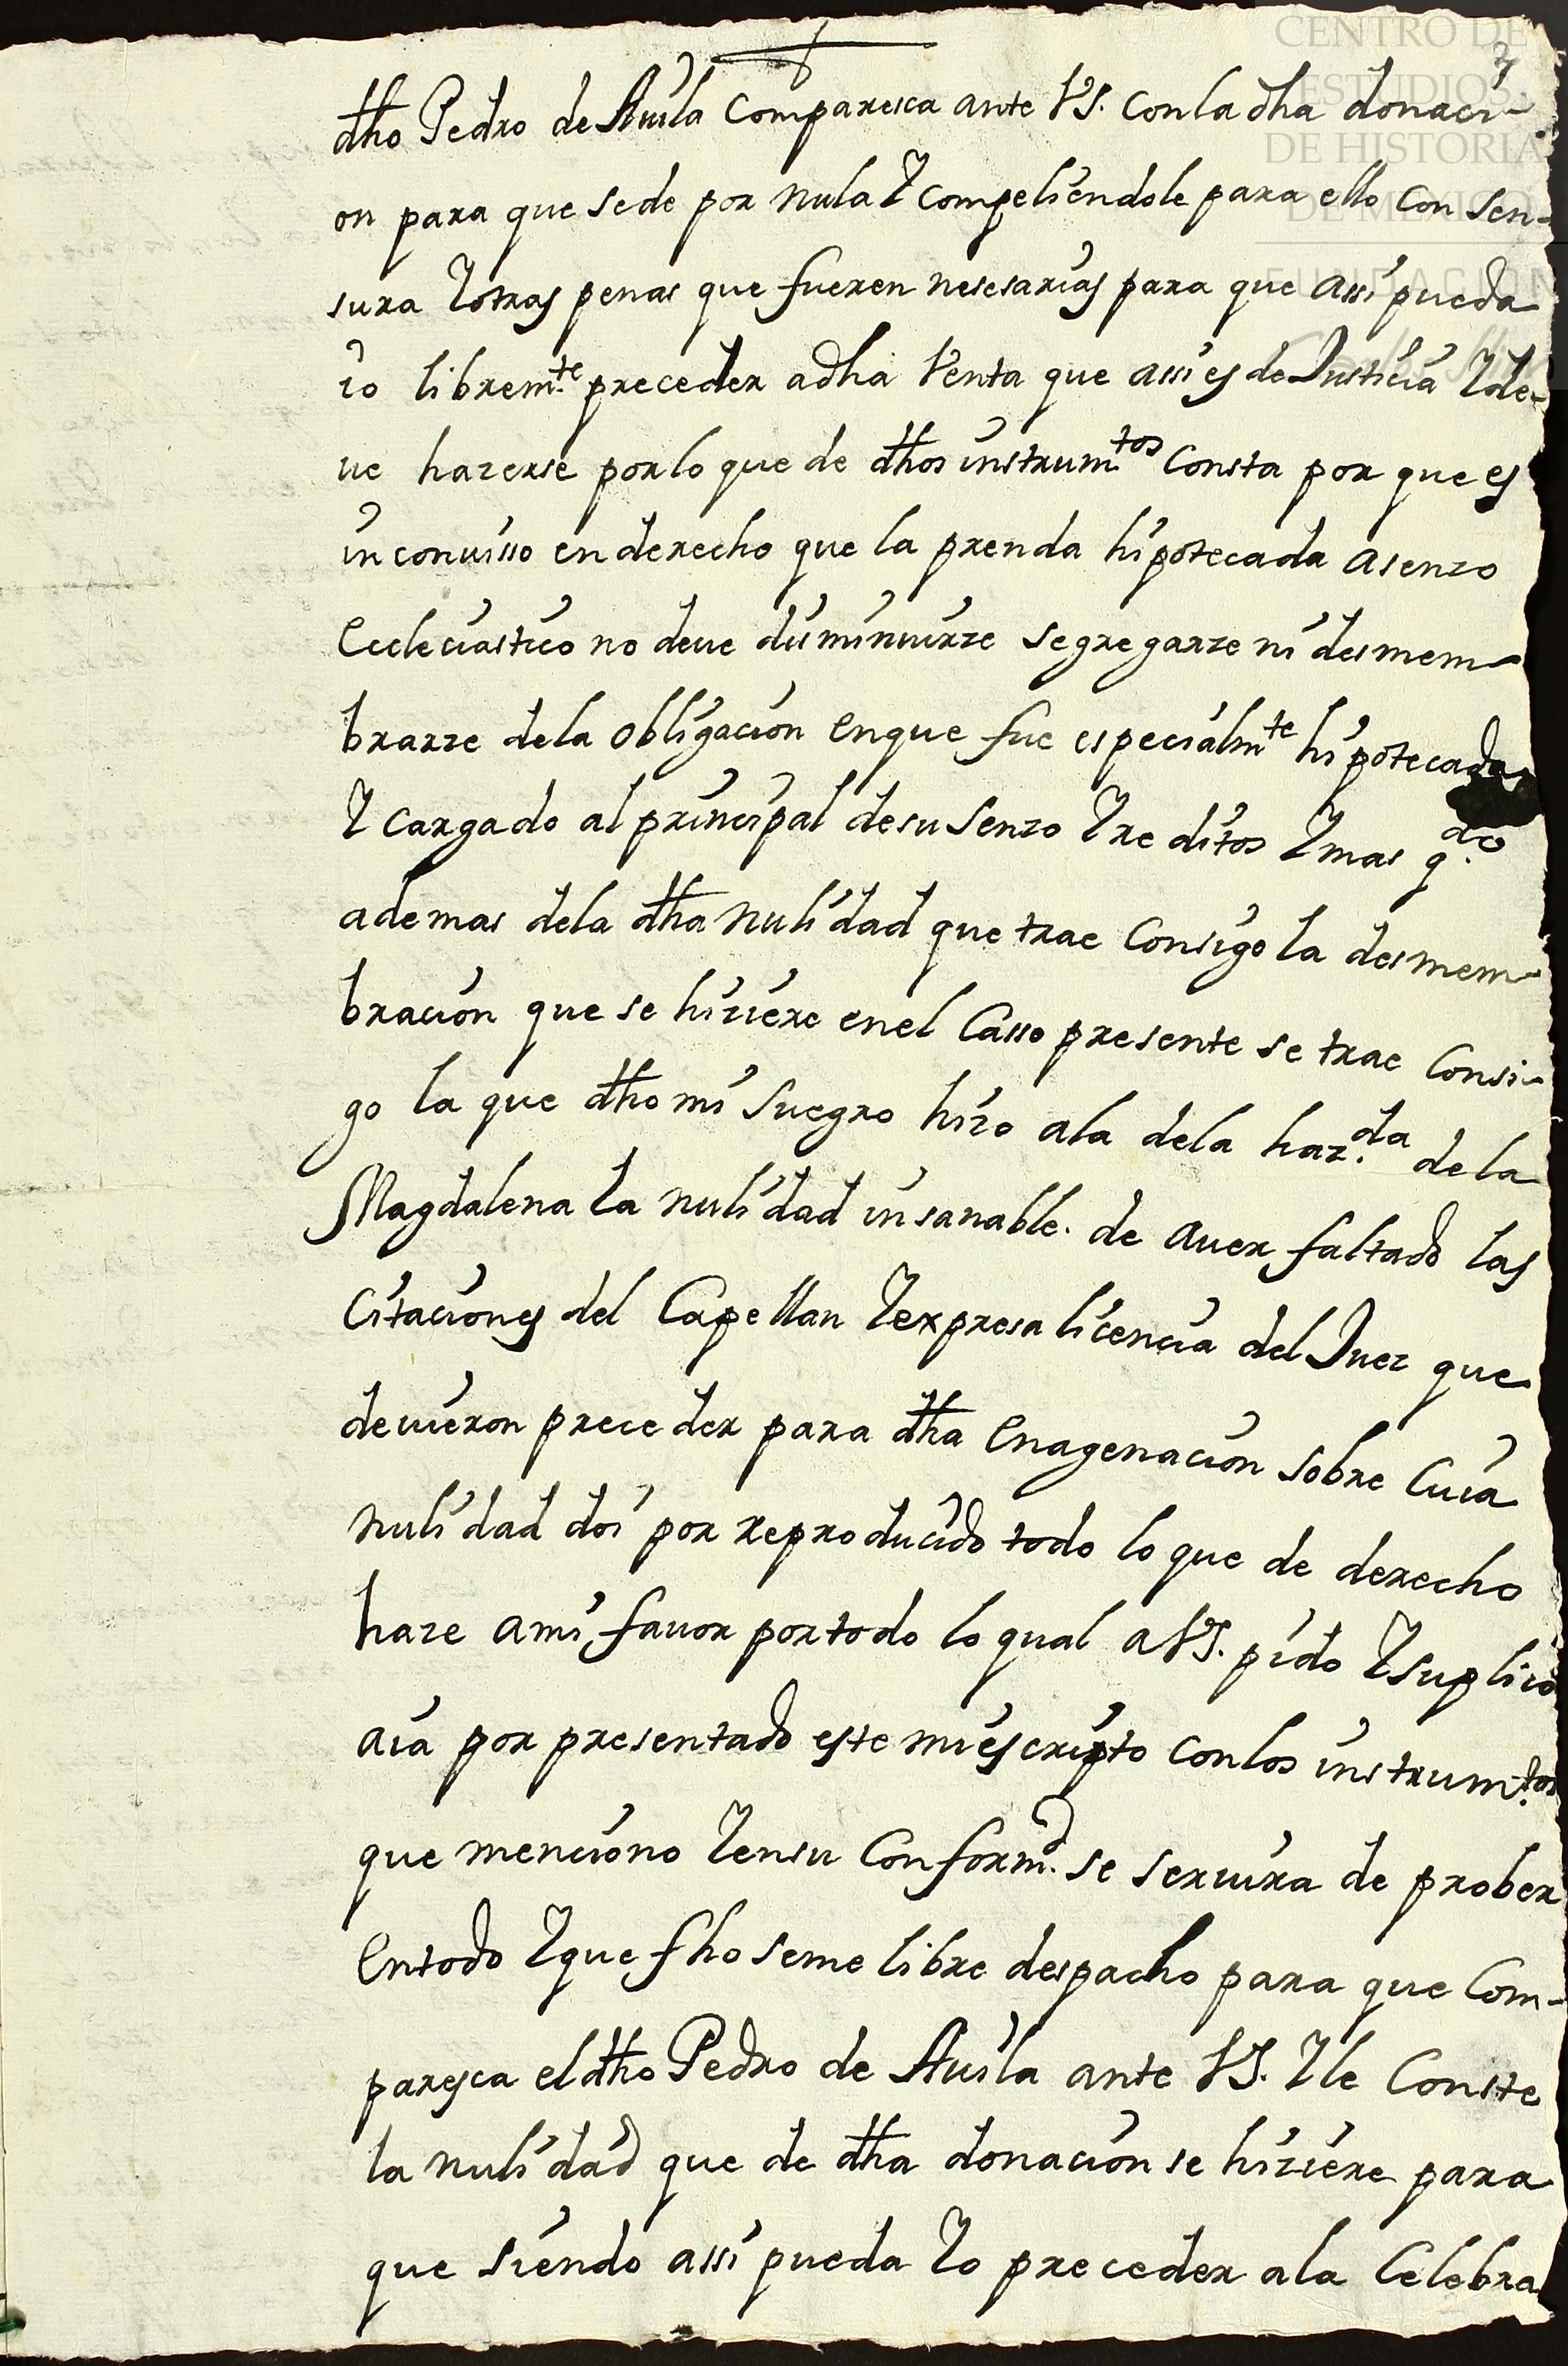 CENTRO DE
ESTUDIOS
DE HISTORIA
DE MEXICO
FUNDACIÓN
dho Pedro de Auila Comparesca ante VS. Con la dha donaci-
on para que se de por nula Y compeliendole para ello Con Sen-
sura Y otras penas que fueren nesesarias para que assi pueda
io libremte. preceder a dha Venta que assi es de Justicia Y de-
ue hazerse por lo que de dhos instrumtos. Consta por que es
inconcusso en derecho que la prenda hipotecada a senzo
Eccleciastico no deue disminuirze segregarze ni desmem-
brarze de la obligacion en que fue especialmte hipotecada
Y cargado al principal de su Senzo Y reditos Y mas qdo.
ademas de la dha nulidad que trae Consigo la desmem-
bracion que se hiziere en el Casso presente se trae Consi-
go la que dho mi Suegro hizo a la de la hazda. de la
Magdalena la nulidad insanable. de auer faltado las
Citaciones del Capellan Y expresa licencia del Juez que
deuieron preceder para dha Enagenacion sobre Cuia
nulidad doi por reproducido todo lo que de derecho
haze a mi fauor por todo lo qual a VS. pido Y suplico
aia por presentado este mi escripto con los instrumtos.
que menciono Y en su Conformd. se seruira de prober
En todo Y que fho se me libre despacho para que Com-
paresca el dho Pedro de Auila ante VS. Y le Conste
la nulidad que de dha donacion se hiziere para
que siendo assi pueda Yo preceder a la Celebra